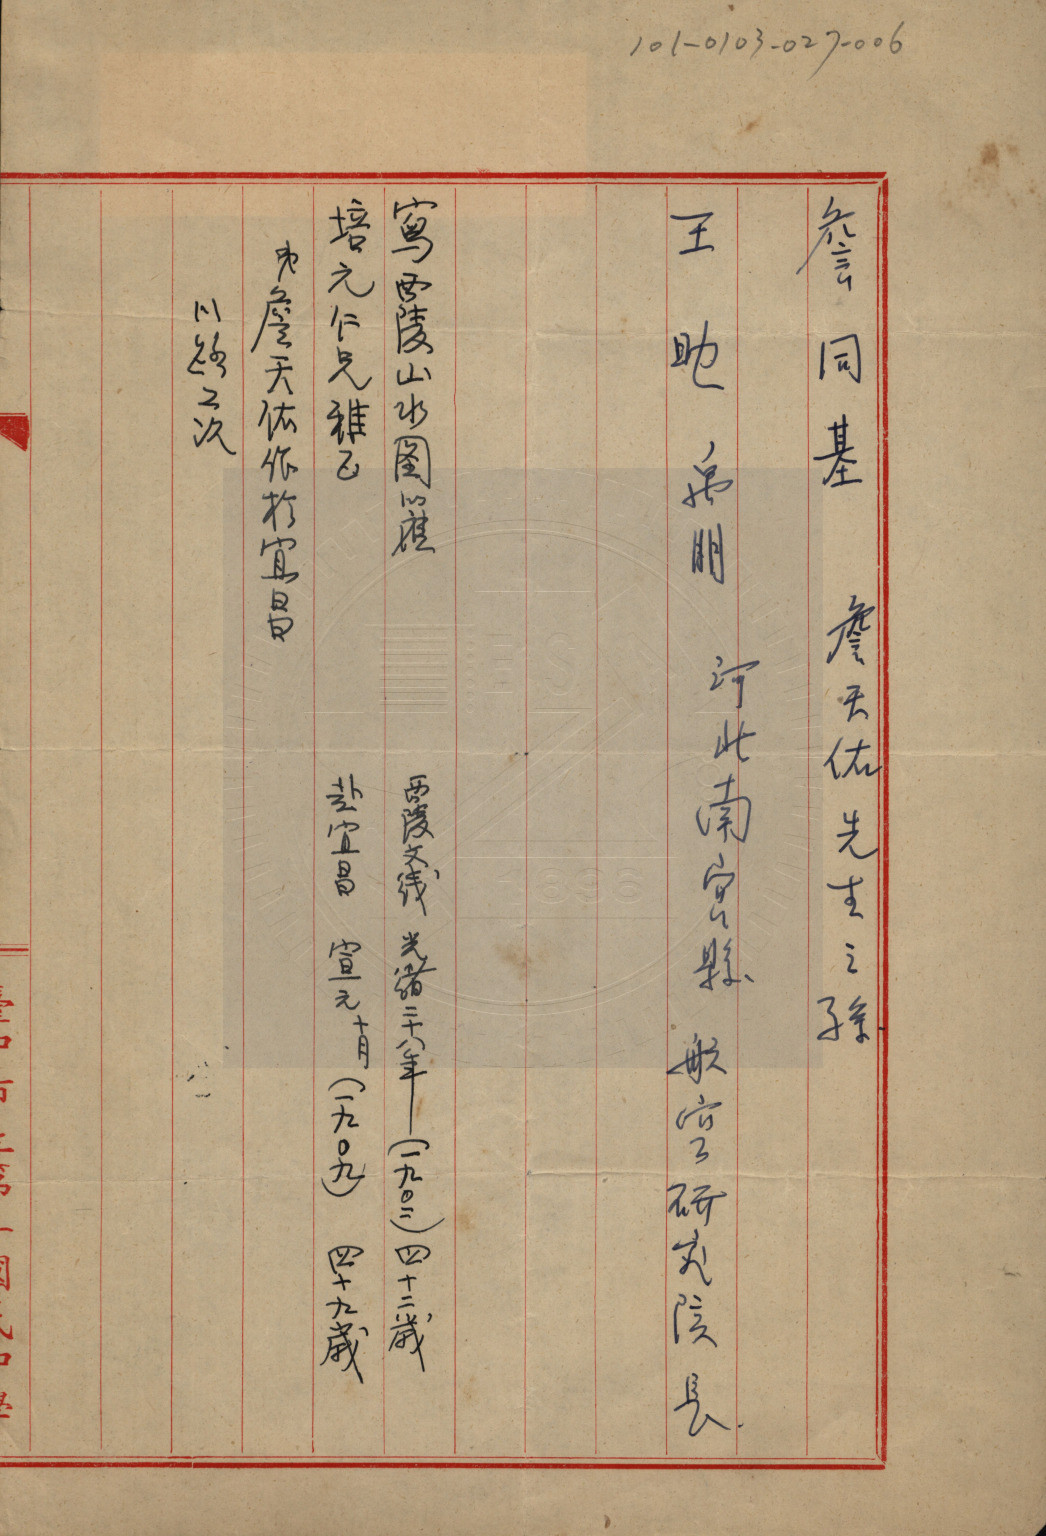 101-0103-027-006
詹同基 詹天佑先生之孫
王助 禹朋 河北南宮縣 航空研究院長
寫西陵山水圖以應
西陵支綫 光緒二十八年—(一九〇二)四十二歲
培元仁兄雅正
赴宜昌 宣元十月(一九〇九) 四十九歲
弟詹天佑作於宜昌
川路工次
臺中市立第一國民中學